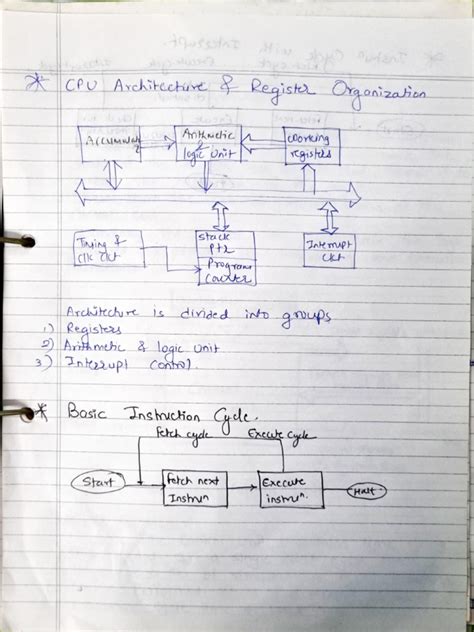 * CPU Architecture & Register Organization
Accumulator
Arithmetic & logic Unit
Working registers
Timing & Clk Ckt
Stack Ptr
Program Counter
Interrupt Ckt
Architecture is divided into groups
1) Registers
2) Arithmetic & logic Unit
3) Interrupt Control.
* Basic Instruction Cycle.
Fetch cycle
Execute cycle
Start
Fetch next Instruⁿ
Execute instruⁿ.
Halt